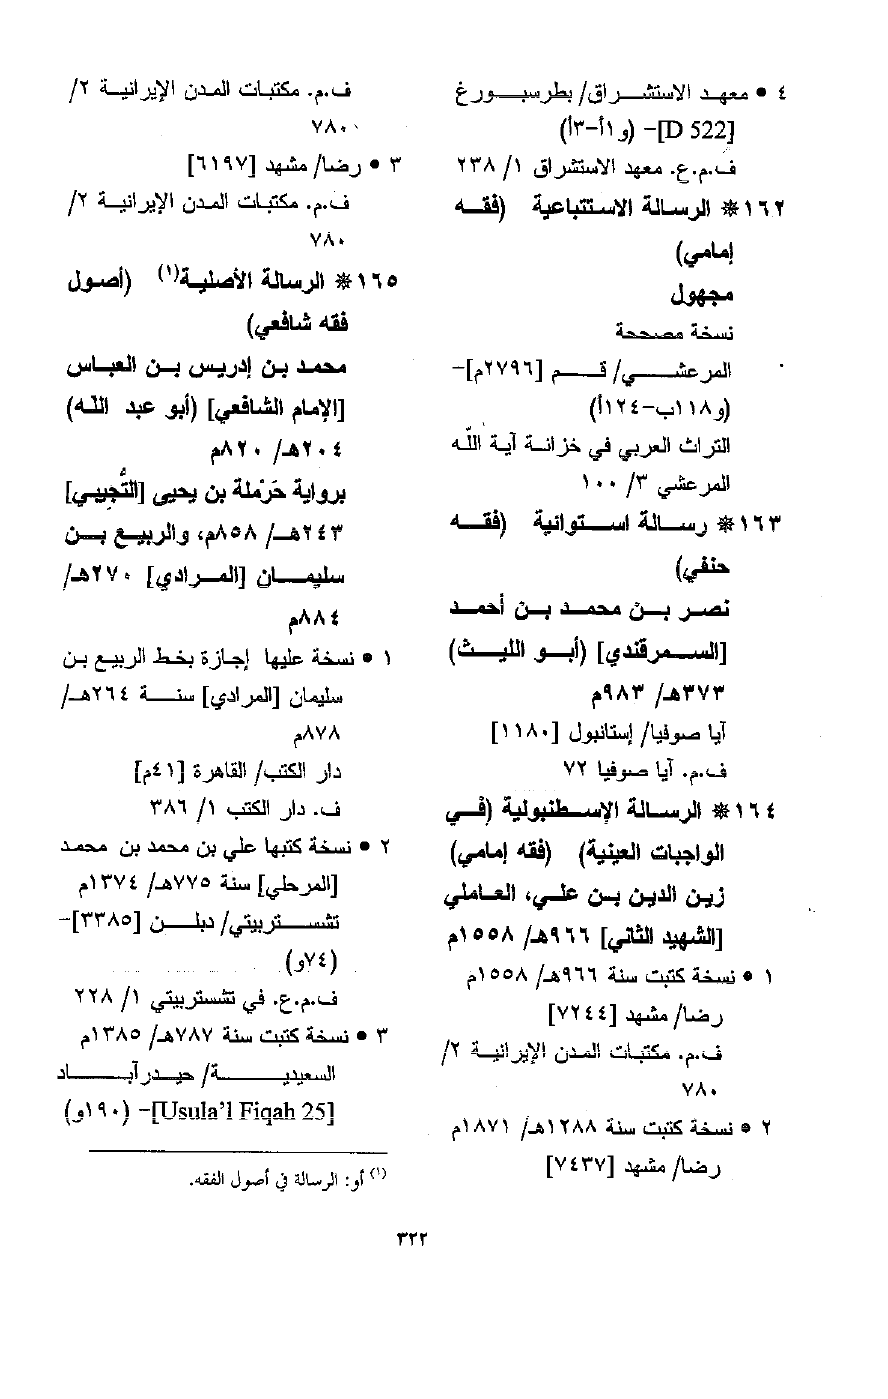 ٤ • معهد الاستشراق/ بطرسبورغ
[D 522]– (و١أ–٣أ)
ف.م.ع. معهد الاستشراق ١/ ٢٣٨
١٦٢* الرسالة الاستتباعية (فقه
إمامي)
مجهول
نسخة مصححة
المرعشي/ قم [٢٧٩٦م]–
(و١١٨ب–١٢٤أ)
التراث العربي في خزانة آية الله
المرعشي ٣/ ١٠٠
١٦٣* رسالة اسـتوانية (فقه
حنفي)
نصر بن محمد بن أحمد
[السمرقندي] (أبو الليث)
٣٧٣هـ/ ٩٨٣م
آيا صوفيا/ إستانبول [١١٨٠]
ف.م. آيا صوفيا ٧٢
١٦٤* الرسالة الإسطنبولية (في
الواجبات العينية) (فقه إمامي)
زين الدين بن علي، العاملي
[الشهيد الثاني] ٩٦٦هـ/ ١٥٥٨م
١ • نسخة كتبت سنة ٩٦٦هـ/ ١٥٥٨م
رضا/ مشهد [٧٢٤٤]
ف.م. مكتبات المدن الإيرانية ٢/
٧٨٠
٢ • نسخة كتبت سنة ١٢٨٨هـ/ ١٨٧١م
رضا/ مشهد [٧٤٣٧]
ف.م. مكتبات المدن الإيرانية ٢/
٧٨٠
٣ • رضا/ مشهد [٦١٩٧]
ف.م. مكتبات المدن الإيرانية ٢/
٧٨٠
١٦٥* الرسالة الأصلية(١) (أصول
فقه شافعي)
محمد بن إدريس بن العباس
[الإمام الشافعي] (أبو عبد الله)
٢٠٤هـ/ ٨٢٠م
برواية حَرْملة بن يحيى [التُّجِيبي]
٢٤٣هـ/ ٨٥٨م، والربيع بن
سليمان [المرادي] ٢٧٠هـ/
٨٨٤م
١ • نسخة عليها إجازة بخط الربيع بن
سليمان [المرادي] سنة ٢٦٤هـ/
٨٧٨م
دار الكتب/ القاهرة [٤١م]
ف. دار الكتب ١/ ٣٨٦
٢ • نسخة كتبها علي بن محمد بن محمد
[المرحلي] سنة ٧٧٥هـ/ ١٣٧٤م
تشستربيتي/ دبلن [٣٣٨٥]–
(٧٤و)
ف.م.ع. في تشستربيتي ١/ ٢٢٨
٣ • نسخة كتبت سنة ٧٨٧هـ/ ١٣٨٥م
السعيدية/ حيدرآباد
[Usula'l Fiqah 25]– (١٩٠و)
(١) أو: الرسالة في أصول الفقه.
٣٢٢